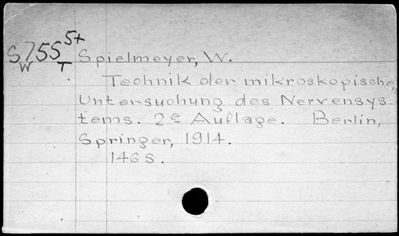 S755st Spielmeyer, W.
W T
Technik der mikroskopische
Untersuchung des Nervensys-
tems. 2e Auflage. Berlin,
Springer, 1914.
146 s.